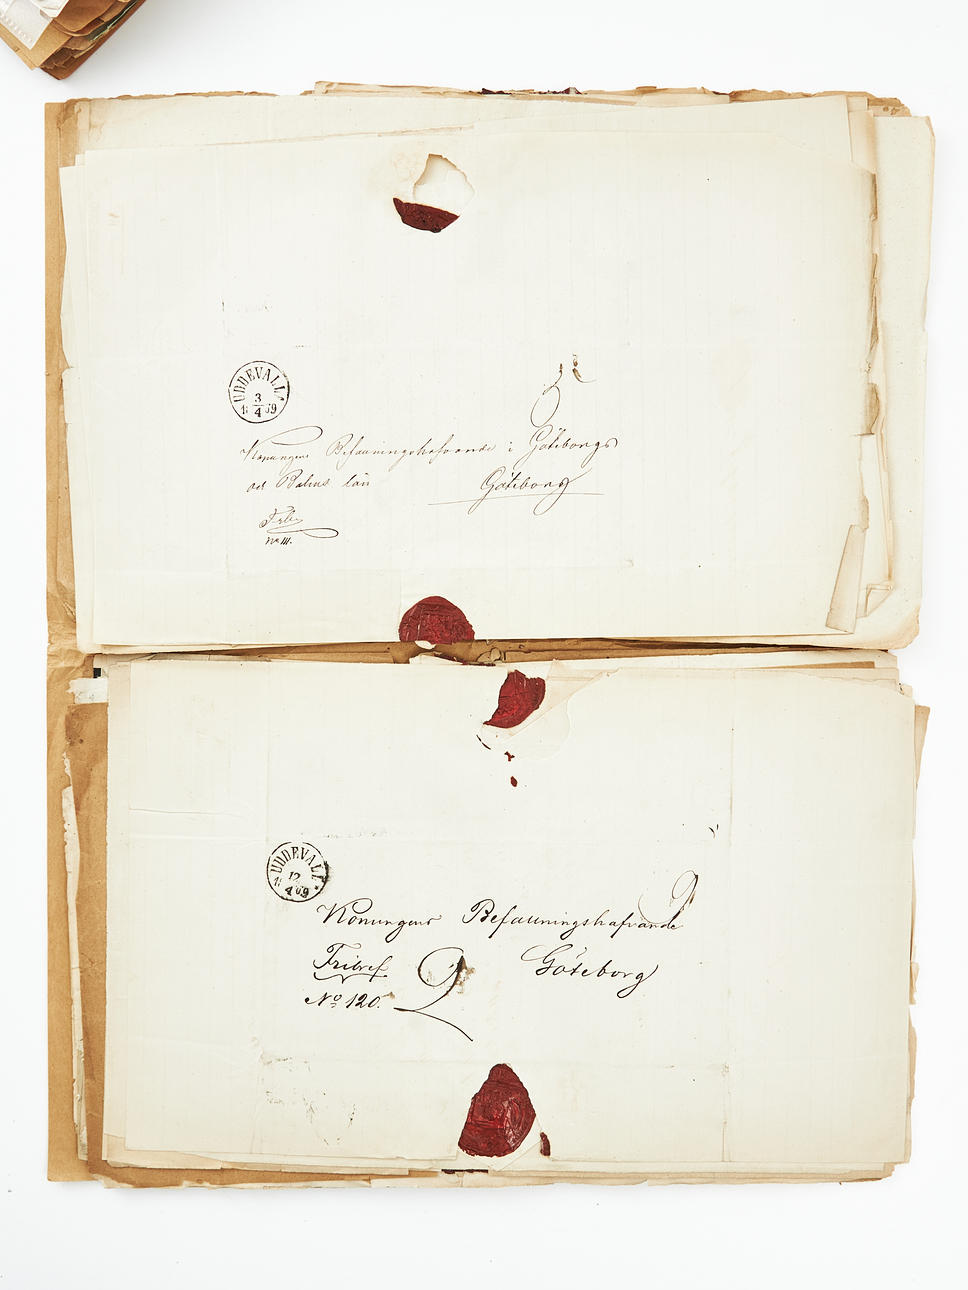 UDDEVALLA
3
4
18 69
Konungens Befallningshafvande i Göteborgs
och Bohus län
Göteborg
Frbr
No 111.
UDDEVALLA
12
4
18 69
Konungens Befallningshafvande
Fribref
Göteborg
No 120.
2